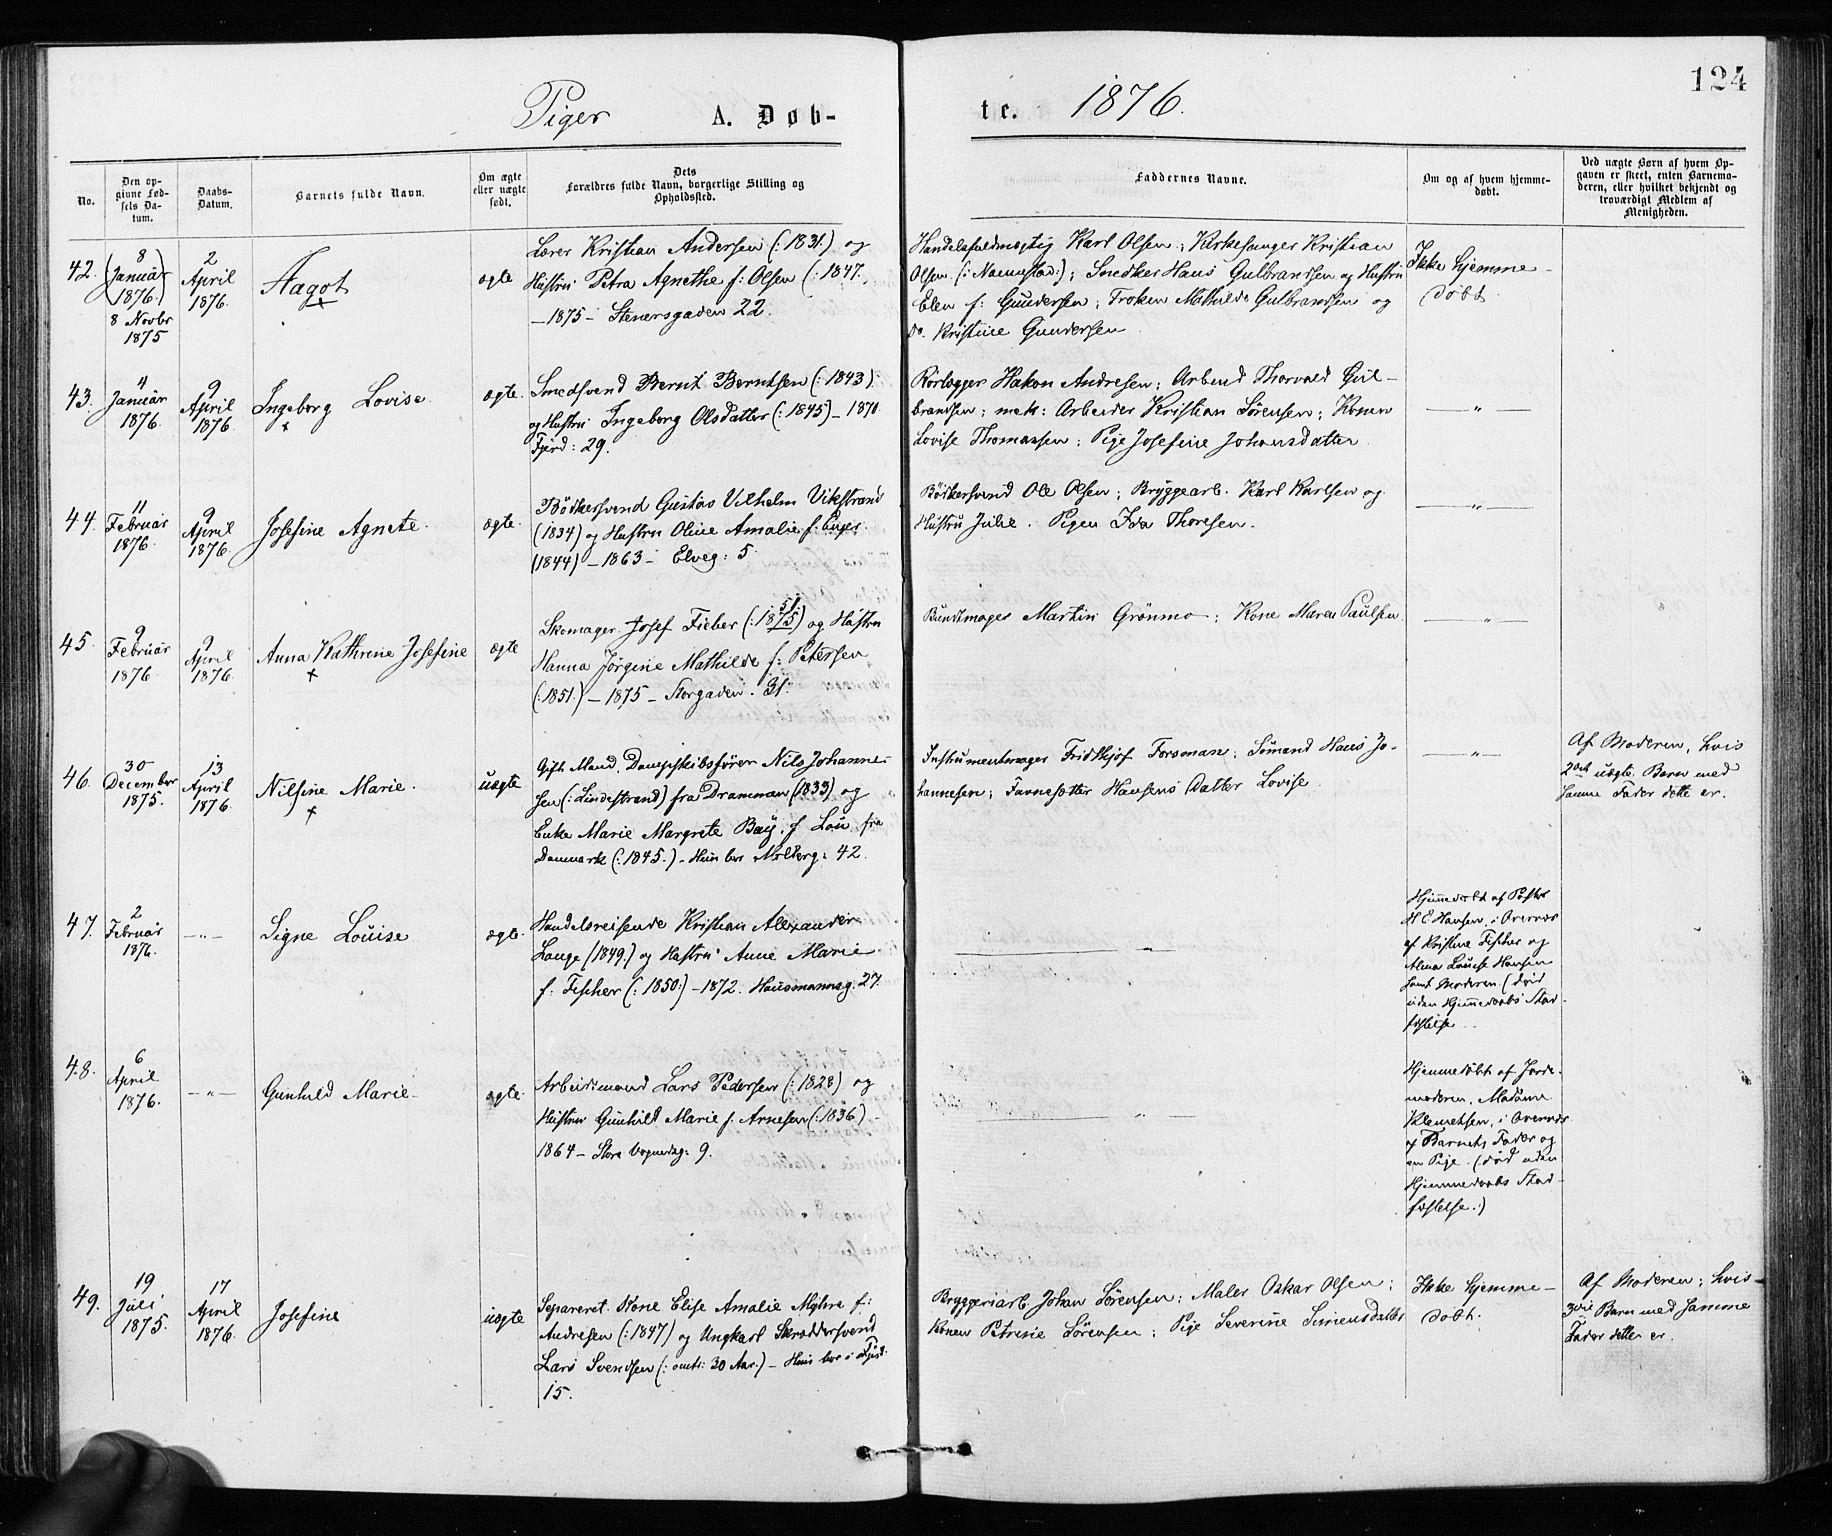 124
Piger A. Døb-
te. 1876.
No.
Den op-
givne Fød-
sels Da-
tum.
Daabs-
Datum.
Barnets fulde Navn.
Om ægte
eller uægte
født.
Dets
Forældres fulde Navn, borgerlige Stilling og
Opholdssted.
Faddernes Navne.
Om og af hvem hjemme-
døbt.
Ved uægte Børn af hvem Op-
gaven er skeet, enten Barnemo-
deren, eller hvilket bekjendt og
troværdigt Medlem af
Menigheden.
42.
8
(Januar
1876.)
8 Novbr
1875
2
April
1876.
Aagot
ægte
Lærer Kristian Andersen (:1831:) og
Hustru Petra Agnethe f: Olsen (:1847.
—1875— Stenersgaden 22.
Handelsfuldmægtig Karl Olsen; Kirkesanger Kristian
Olsen (:Naennstad:); Snedker Hans Gulbrandsen og Hustru
Elen f: Gundersen; Frøken Mathilde Gulbrandsen og
Do. Kristine Gundersen
Ikke hjemme-
døbt
43.
4
Januar
1876.
9
April
1876.
Ingeborg Lovise.
ægte.
Smedsvend Bernt Berntsen (:1843)
og Hustru Ingeborg Olsdatter (:1845) — 1870
Fjerd: 29.
Rørlægger Hakon Andresen; Arbmd Thorvald Gul-
brandsen; mek: Arbeider Kristian Sørensen; Konen
Lovise Thomassen; Pige Josefine Johansdatter
—"—
44.
11
Februar
1876.
9
April
1876.
Josefine Agnete.
ægte.
Bødkersvend Gustav Vilhelm Vikstrand
(1834) og Hustru Oline Amalie f: Enger.
(1844) — 1863 — Elveg: 5
Bødkersvend Ole Olsen; Bryggearb. Karl Karlsen og
Hustru Julie. Pigen Ida Thoresen.
—"—
45.
9
Februar
1876
9
April
1876.
Anna Kathrine Josefine
ægte
51.
Skomager Josef Fieber (:1875) og Hustru
Hanna Jørgine Mathilde f: Petersen
(:1851:) — 1875 — Storgaden. 31.
Bundtmager Martin Grönmo; Kone Maren Paulsen.
—"—
46.
30
December
1875.
13
April
1876
Nilsine Marie.
uægte
Gift Mand, Dampskibsfører Nils Johanne-
sen (:Lindestrand) fra Drammen (1833) og
Enke Marie Margrete Bay f Lou fra
Danmark (:1845.) — Hun bor Møllerg: 42.
Instrumentmager Fridthjof Forsman; Sømand Hans Jo-
hannesen; Farvesætter Hansens Datter Lovise.
—"—
Af Moderen, hvis
2det uægte Barn med
samme Fader dette er.
47.
2
Februar
1876.
—"—
Signe Louise
ægte.
Handelsreisende Kristian Alexander
Lange (1849.) og Hustru Anne Marie
f: Fischer (:1850:) — 1872. Hausmannsg: 27.
—"—
Hjemmedøbt af Pastor
H E Hansen, i Overvær
af Kristine Fischer og
Alma Louise Hansen
samt Moderen. (død
uden Hjemmedaabs Stad-
fæstelse
48.
6
April
1876.
—"—
Gunhild Marie.
ægte.
Arbeidsmand Lars Pedersen (:1828) og
Hustru Gunhild Marie f. Arnesen (:1836)
1864 — Store Vognmdsg: 9.
—"—
Hjemmedøbt af Jorde-
moderen, Madame
Klemetsen, i Overvær
af Barnets Fader og
en Pige. (død uden
Hjemmedaabs Stad-
fæstelse.)
49.
19
Juli
1875.
17
April
1876.
Josefine
uægte
Separeret Kone Elise Amalie Myhre f:
Andresen (:1847) og Ungkarl Skræddersvend
Lars Svendsen (:omtr: 30 Aar.) — Hun bor i
15.
Bryggeriarb. Johan Sørensen; Maler Oskar Olsen;
Konen Petrine Sørensen; Pige Severine Simensdatter
Ikke hjemme-
døbt.
Af Moderen; hvis
3die Barn med samme
Fader dette er.